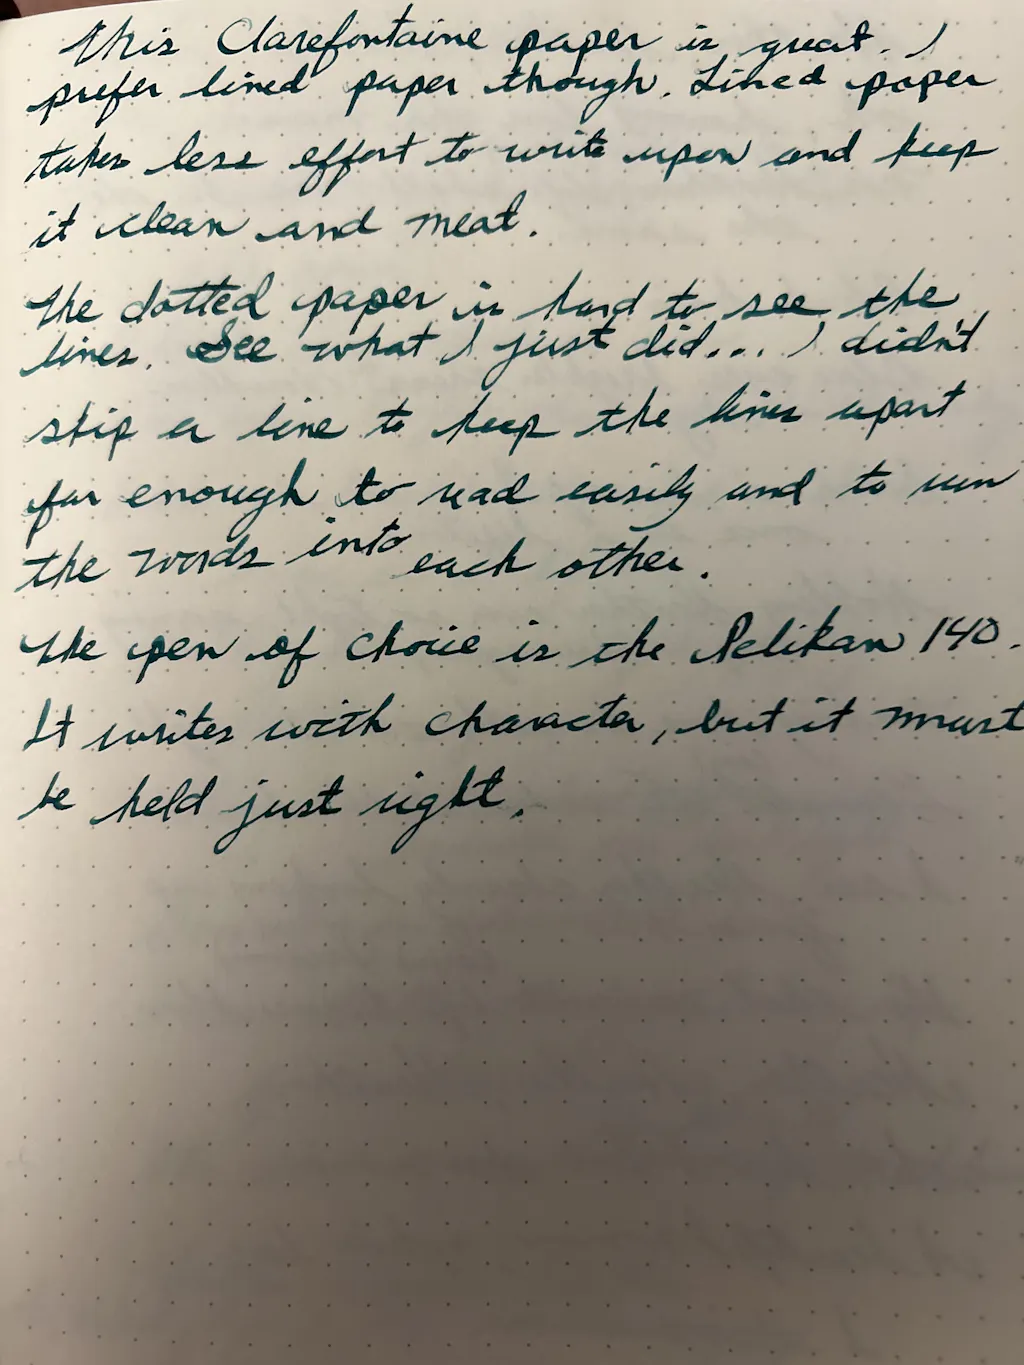 This Clarefontaine paper is great. I
prefer lined paper though. Lined paper
takes less effort to write upon and keep
it clean and neat.
The dotted paper is hard to see the
lines. See what I just did... I didn't
skip a line to keep the lines apart
far enough to read easily and to run
the words into each other.
The pen of choice is the Pelikan 140.
It writes with character, but it must
be held just right.